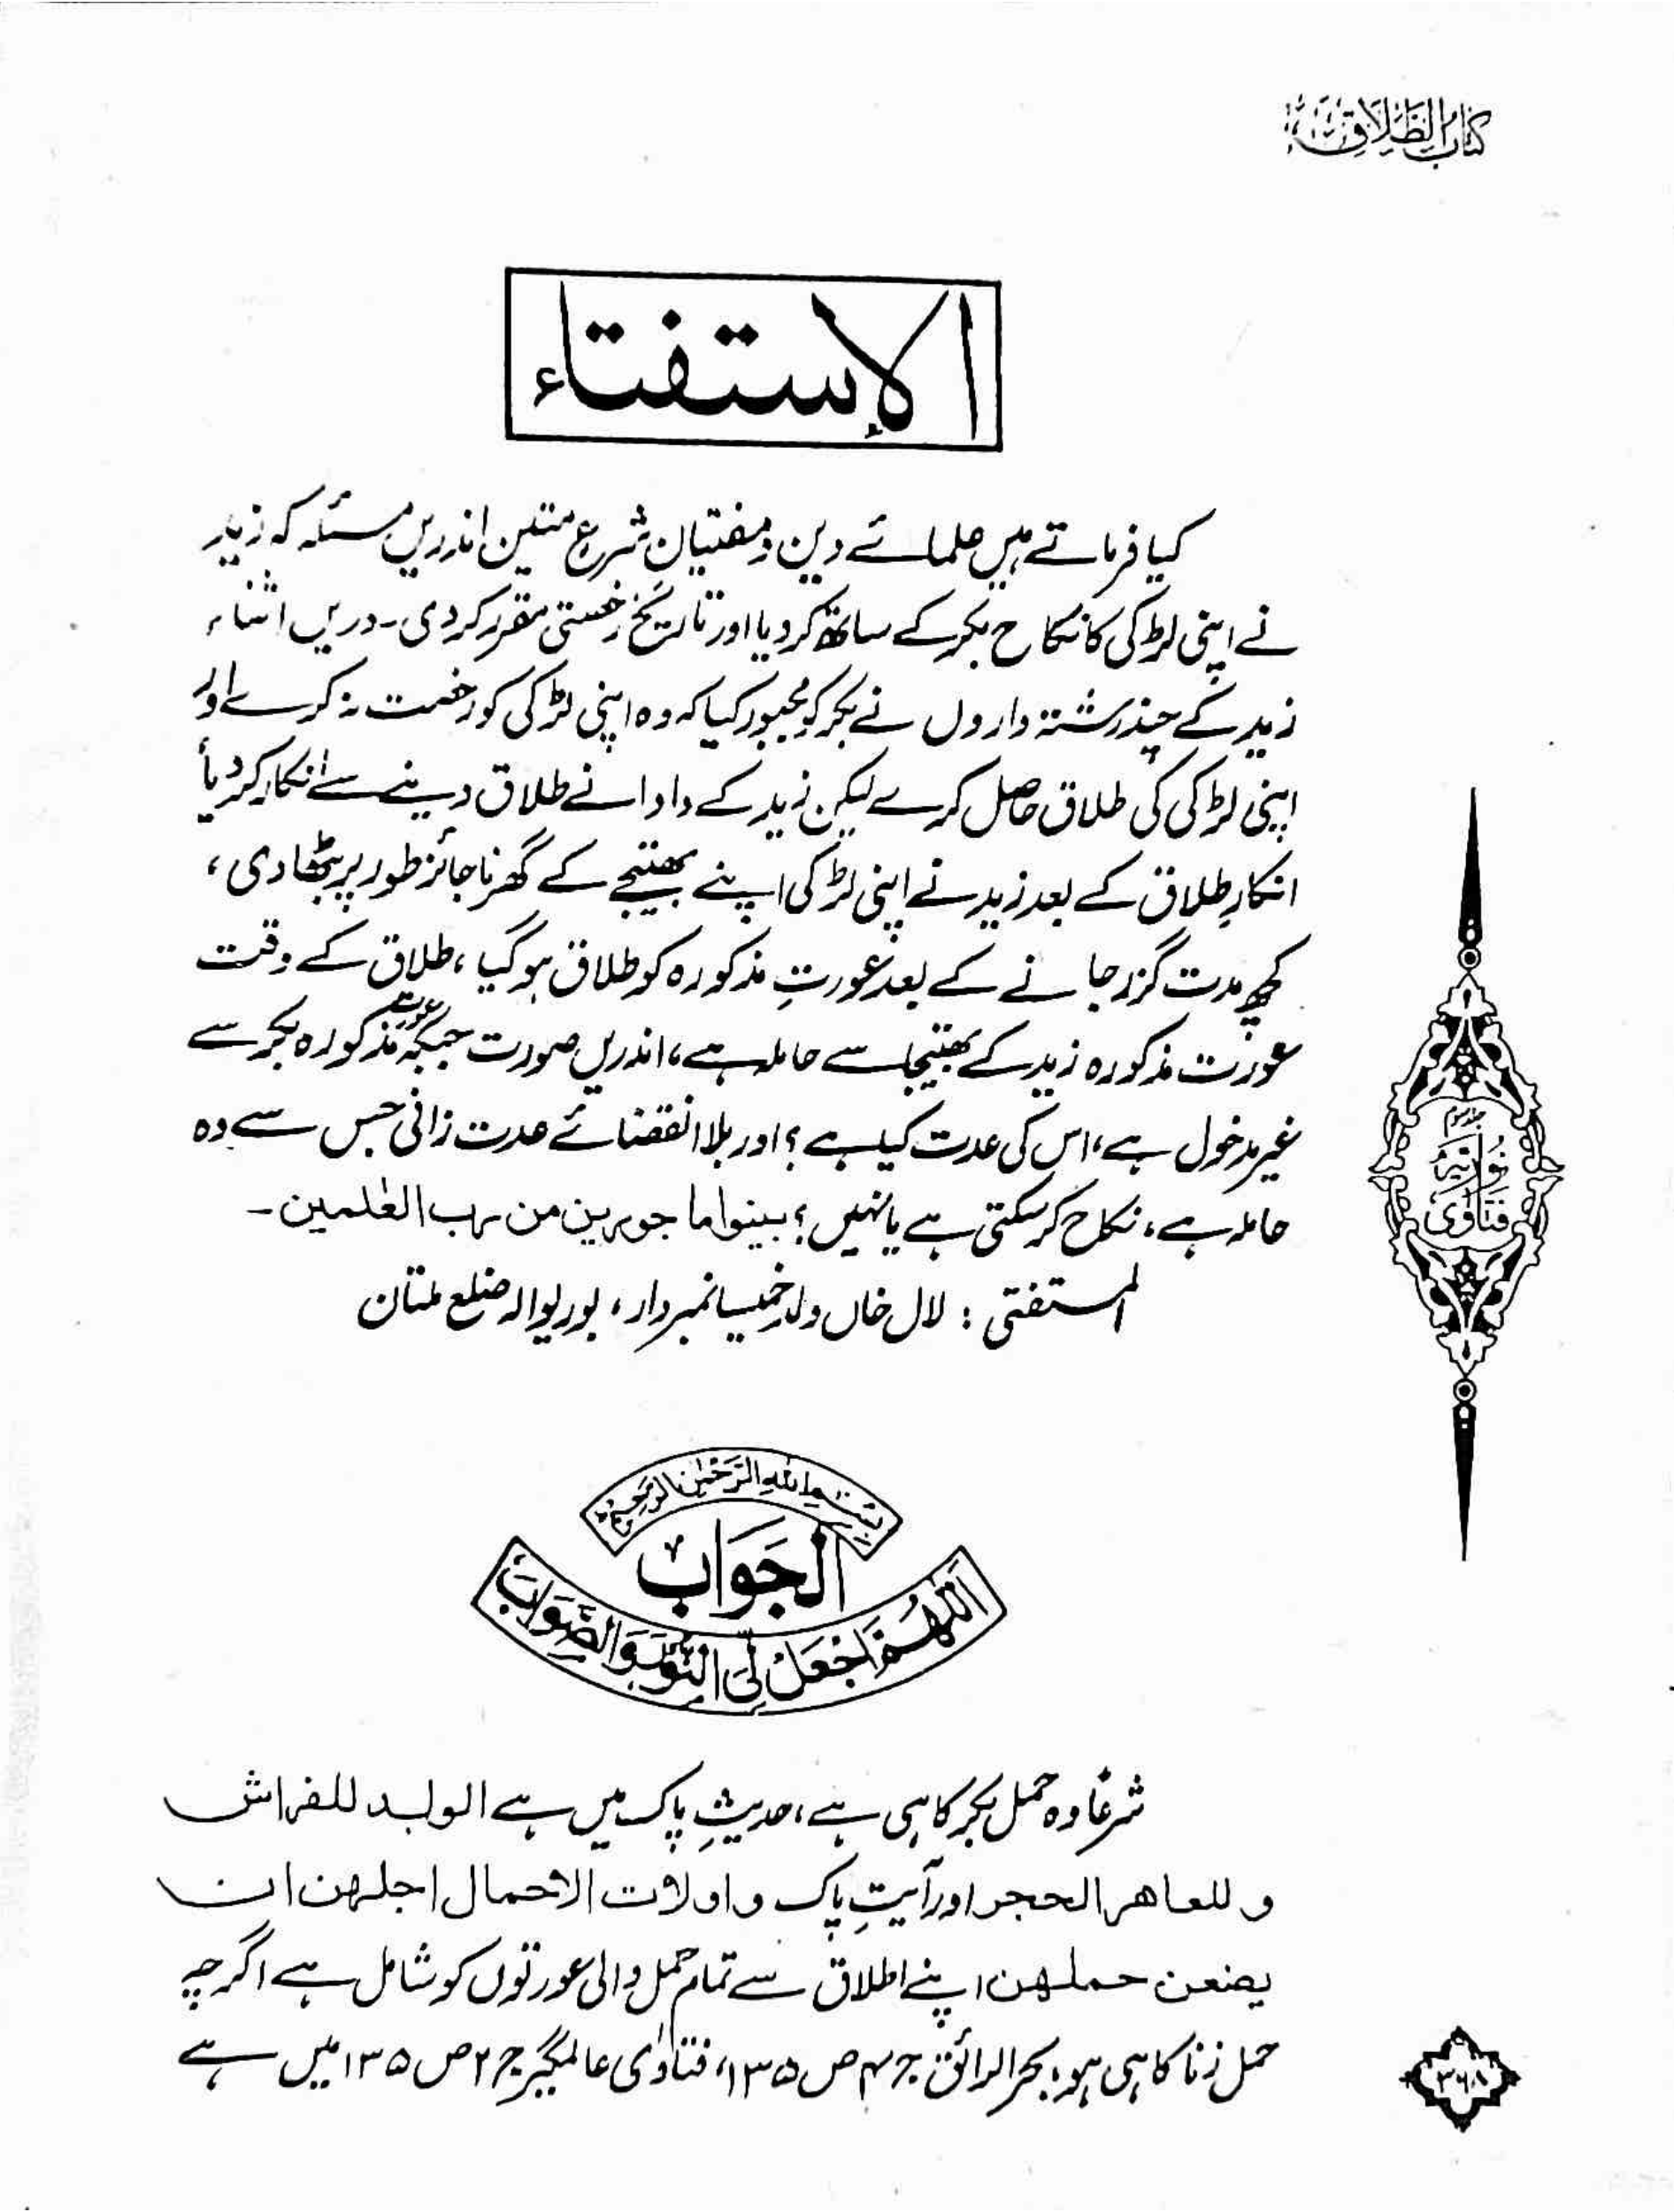 كتاب الطلاق
الإستفتاء
کیا فرماتے ہیں علمائے دین و مفتیانِ شرع متین اندریں مسئلہ کہ زید
نے اپنی لڑکی کا نکاح بکر کے ساتھ کر دیا اور تاریخ رخصتی مقرر کر دی۔ دریں اثناء
زید کے چند رشتہ داروں نے بکر کو مجبور کیا کہ وہ اپنی لڑکی کو رخصت نہ کرے اور
اپنی لڑکی کی طلاق حاصل کرے لیکن زید کے دادا نے طلاق دینے سے انکار کر دیا
انکارِ طلاق کے بعد زید نے اپنی لڑکی اپنے بھتیجے کے گھر ناجائز طور پر بٹھا دی،
کچھ مدت گزر جانے کے بعد عورتِ مذکورہ کو طلاق ہو گیا، طلاق کے وقت
عورت مذکورہ زید کے بھتیجا سے حاملہ ہے، اندریں صورت جبکہ عورت مذکورہ بکر سے
غیر مدخول ہے، اس کی عدت کیا ہے؟ اور بلا انقضائے عدت زانی جس سے وہ
حاملہ ہے، نکاح کر سکتی ہے یا نہیں؟ بینوا ماجورین من رب العٰلمین۔
المستفتی: لال خاں ولد خمیسا نمبردار، بوریوالہ ضلع ملتان
جلد سوم
نوریہ
فتاوٰی
بِسْمِ اللهِ الرَّحْمٰنِ الرَّحِيْمِ
الجَوَاب
اَللّٰهُمَّ اجْعَلْ لِّىَ النُّوْرَ وَالصَّوَابَ
شرعًا وہ حمل بکر کا ہی ہے، حدیثِ پاک میں ہے الولد للفراش
و للعاھر الحجر اور آیتِ پاک و اولات الاحمال اجلھن ان
یضعن حملھن اپنے اطلاق سے تمام حمل والی عورتوں کو شامل ہے اگرچہ
حمل زنا کا ہی ہو، بحر الرائق ج ۴ ص ۱۳۵، فتاوٰی عالمگیر ج ۲ ص ۱۳۵ میں ہے
۳۶۸